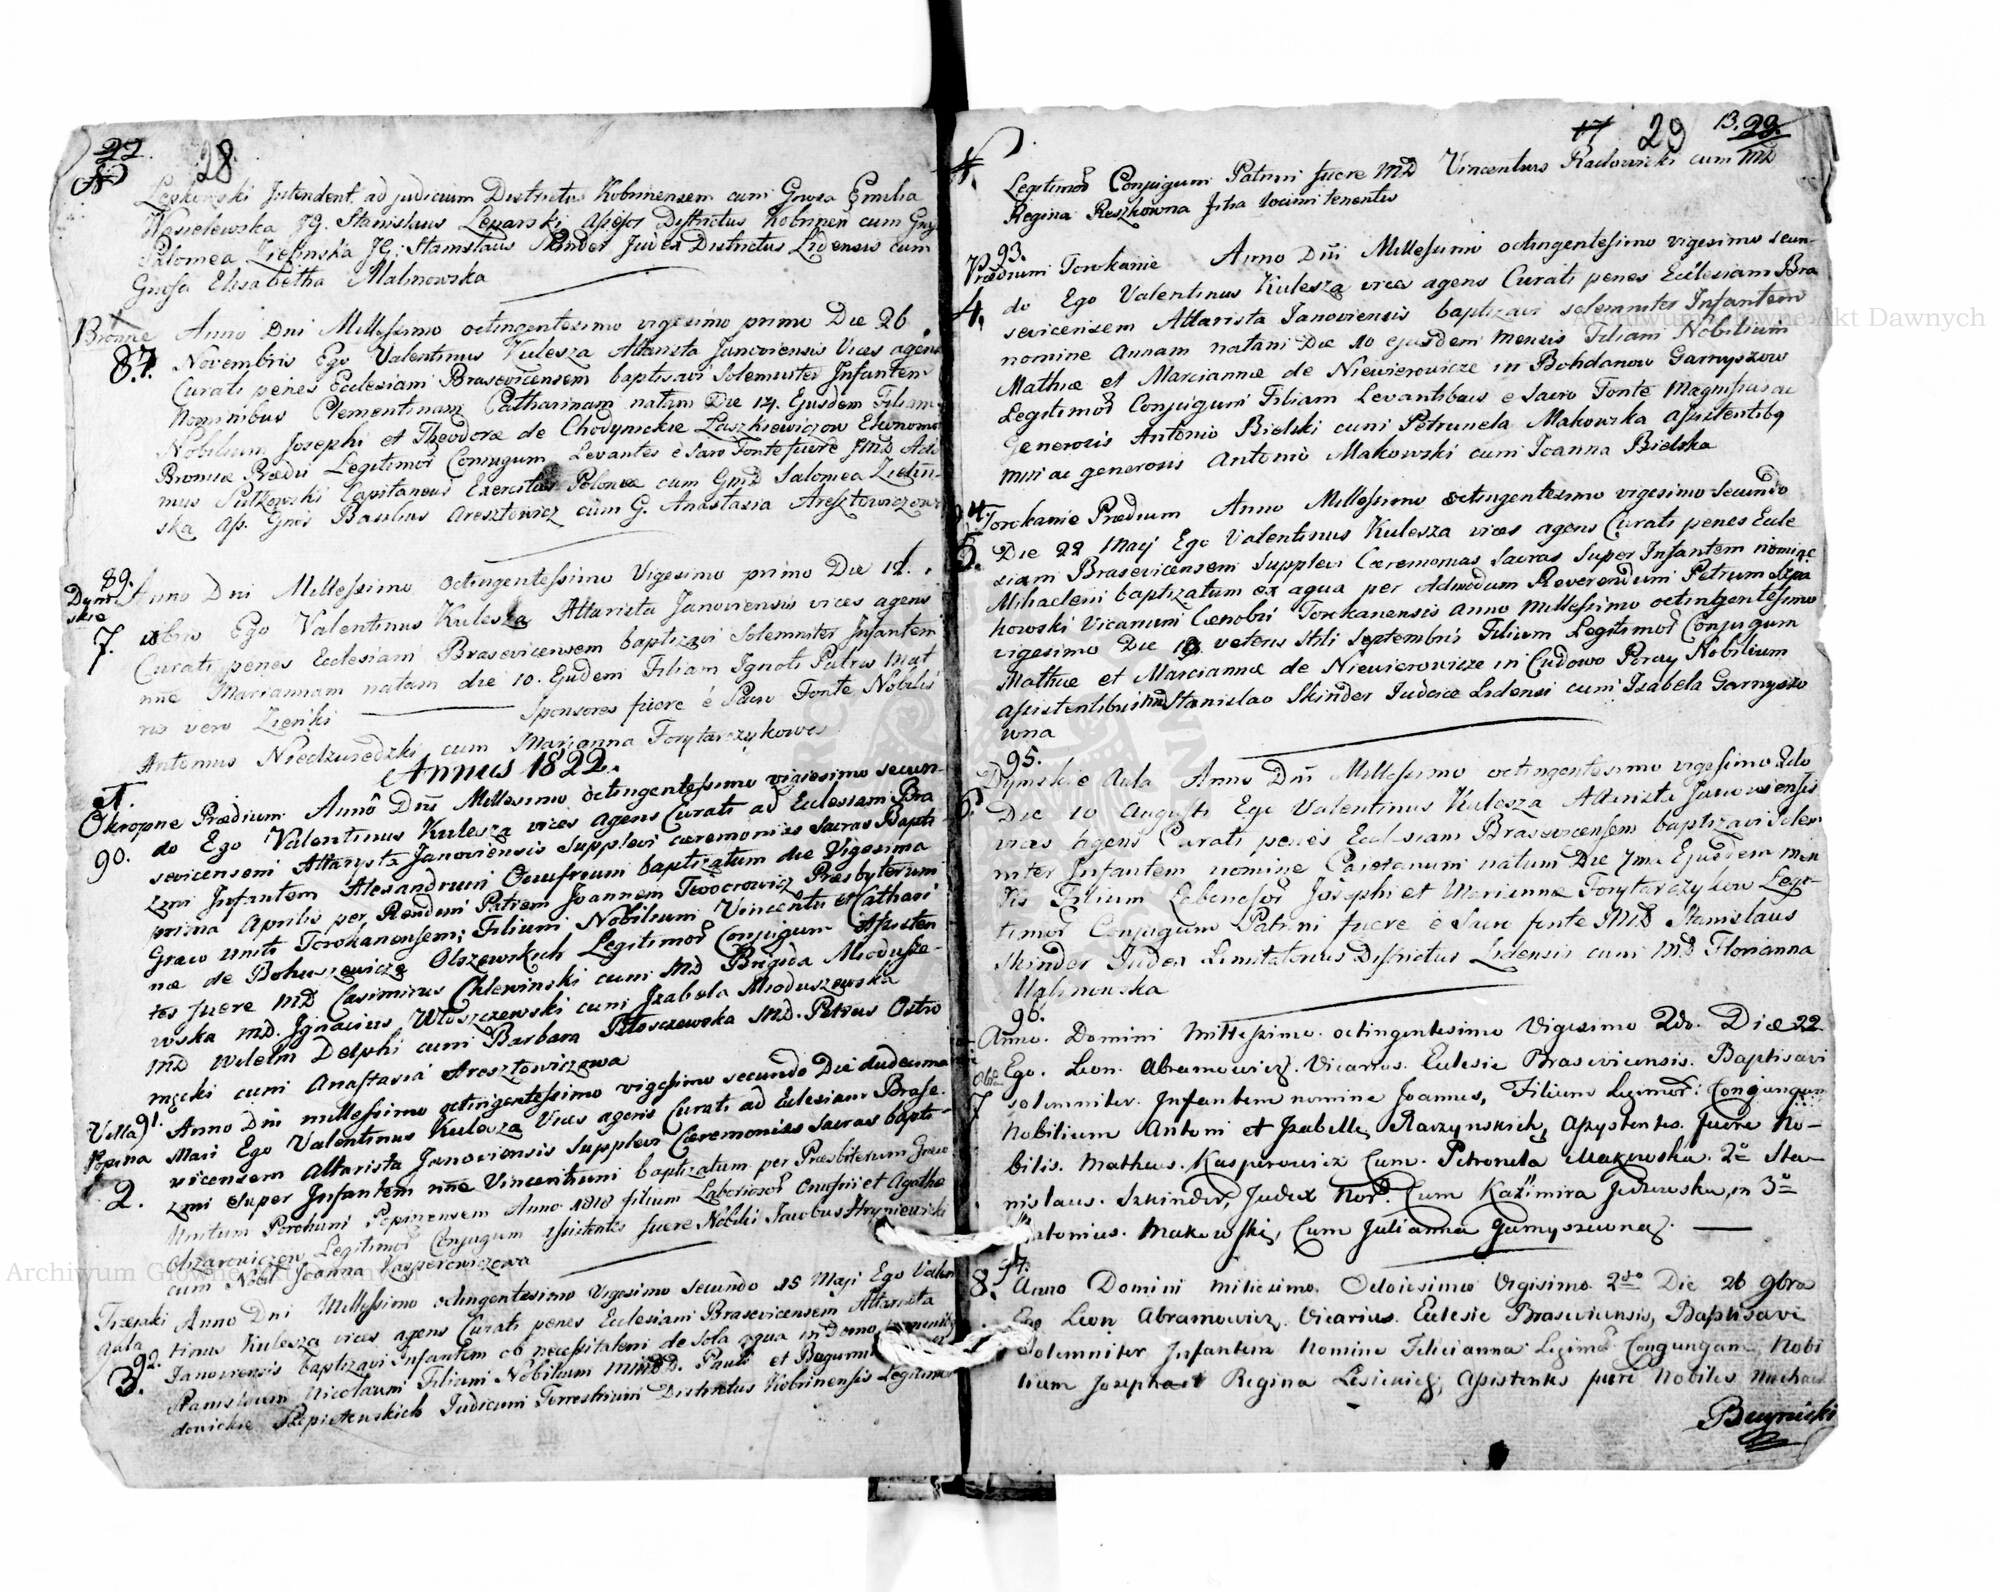 28
Lepkowski Intendent. ad judicium Districtus Kobrinensem cum Gnosa Emilia
Wasielewska JG. Stanislaus Leparski Assesor Districtus Kobrinen cum Gnsa
Salomea Zielinska JG: Stanislaus Skinder Judex Districtus Lidensis cum
Gnosa Elisabetha Malinowska
Bronne Anno Dni Millessimo octingentesimo vigesimo primo Die 26
87. Novembris Ego Valentinus Kulesza Altarista Janoviensis Vices agens
Curati penes Ecclesiam Brasevicensem baptisavi Solemniter Infantem
Nominibus Clementinam Catharinam natam Die 14. Ejusdem Filiam
Nobilium Josephi et Theodoræ de Chodynickie Laszkiewiczow Ekonomo
Bronnæ Prædii Legitimor Conjugum Levantes è Sacro Fonte fuere JMD Ada-
mus Rutkowski Capitaneus Exercitus Poloniæ cum GMD Salomea Zielin-
ska ass. Gnôs Basilius Aresztowicz cum G. Anastasia Aresztowiczowa
89. Anno Dni Millessimo Octingentessimo Vigesimo primo Die 12.
Dymskie
7. xbris Ego Valentinus Kulesza Altarista Janoviensis vices agens
Curati penes Ecclesiam Brasevicensem baptizavi Solemniter Infantem
nñe Mariannam natam die 10. Ejusdem Filiam Ignoti Patris Mat
ris vero Zienki Sponsores fuere è Sacro Fonte Nobilis
Antonius Niedzwiedzki cum Marianna Forytarczykowa
Annus 1822.
1.
Okropne Prædium Anno Dni Millesimo octingentessimo vigiesimo secun-
90. do Ego Valentinus Kulesza vices agens Curati ad Ecclesiam Bra
sevicensem Altarysta Janoviensis Supplevi cæremonias Sacras Bapti-
zmi Infantem Alexandrum Onufrium baptizatum die Vigesima
prima Aprilis per Rendum Patrem Joannem Teodorowicz Præsbyterum
Græco Uniti Torokanensem; Filium Nobilium Vincentii et Cathari
næ de Bohuszewicze Olszewskich Legitimor Conjugum Assisten
tes fuere MD Casimirus Chlewinski cum MD Brigida Miodusze-
wska MD. Ignacius Wloszczewski cum Izabela Mioduszewska
MD Wilelm Delphi cum Barbara Wloszczewska MD. Petrus Ostro
męcki cum Anastasia Aresztowiczowa
Villa 91. Anno Dni millessimo octingentessimo vigessimo secundo Die duodecima
Popina Maii Ego Valentinus Kulesza Vices agens Curati ad Ecclesiam Brase-
2. vicensem Altarista Janoviensis Supplevi Cæremonias Sacras bapti-
zmi Super Infantem nñe Vincentium baptizatum per Præsbiterum Græco
Unitum Parchum Popinensem Anno 1818 filium Laboriosor Onufrii et Agathæ
Legitimor Conjugum Assistentes fuere Nobilis Jacobus Hryniewicki
cum Nobil Joanna Kasperowiczowa
Anno Dni Millessimo octingentesimo Vigesimo Secundo 15 Maji Ego Valen
Aula tinus Kulesza vices agens Curati penes Ecclesiam Brasevicensem Altarista
92. Janoviensis baptizavi Infantem ob necessitatem de Sola aqua in Domo
3. Stanislaum Nicolaum Filium Nobilium MMDD. Pauli et
Szepietowskich Judicum Terrestrium Districtus Kobrinensis Legitimor
17 29 13. 29.
Legitimor Conjugum Patrini fuere MD Vincentius Radowicki cum MD
Regina Reszkowna Filia locum tenentis
93.
Prædium Torokanie Anno Dni Millessimo octingentesimo vigesimo secun-
4. do Ego Valentinus Kulesza vices agens Curati penes Ecclesiam Bra
sevicensem Altarista Janoviensis baptizavi solemniter Infantem
nomine Annam natam Die 10 ejusdem Mensis Filiam Nobilium
Mathiæ et Mariannæ de Niewierowicze in Bohdanow Garnyszow
Legitimor Conjugum Filiam Levantibus e Sacro Fonte Magnificis ac
Generosis Antonio Bielski cum Petrunela Makowska assistentibq
MM ac generosis Antonio Makowski cum Joanna Bielska
94. Torokanie Prædium Anno Millessimo octingentesimo vigesimo secundo
5. Die 22 Maij Ego Valentinus Kulesza vices agens Curati penes Eccle
siam Brasevicensem Supplevi Cæremonias Sacras Super Infantem nomine
Mihaelem baptizatum ex aqua per Admodum Reverendum Petrum
kowski Vicarium Cænobii Torokanensis Anno Millessimo octingentessimo
vigesimo Die 19 veteris stili Septembris Filium Legitimor Conjugum
Mathiæ et Mariannæ de Niewierowicze in Cudowo Poray Nobilium
Assistentibus MD Stanislao Skinder Judice Lidensi cum Izabela Garnyszo
wna
95.
Dymskie Aula Anno Dni Millessimo octingentesimo vigessimo 2do
6. Die 10 Augusti Ego Valentinus Kulesza Altarista Janoviensis
vices Agens Curati penes Ecclesiam Brasevicensem baptizavi Solem
niter Infantem nomine Caietanum natum Die 7ma Ejusdem men
sis Filium Laboriosor Josephi et Mariannæ Forytarczykow Legi-
timor Conjugum Patrini fuere è Sacro fonte MD Stanislaus
Skinder Judex Limitaneus Districtus Lidensis cum MD Florianna
Malinowska
96.
Anno. Domini Millessimo. octingentesimo Vigesimo 2do. Die 22
8bris Ego. Leon. Abramowicz. Vicarius. Eclesie Brasevicensis. Baptisavi
7. solemniter. Infantem nomine Joannes, Filium Legimor: Congungum
Nobilium Antoni et Izabelle, Raczynskich, Assystentes. fuere No-
bilis. Matheus. Kasperowicz Cum. Petronela Makowska. 2o Sta-
nislaus. Szkinder, Judex Cum Kazimira in 3o
Antonius. Makowski, Cum Julianna Garnyszewna.
97.
8. Anno Domini Milesimo. Octoiesimo Vigisimo 2do Die 26 9bra
Ego Leon Abramowicz. Vicarius. Eclesie Braseviensis, Baptisavi
Solemniter Infantem Nomine Felicianna Legimor Congungam, Nobi
lium Josepha et Regina Lisiewicz, Assistentes fuere Nobiles Michael
Buynicki
Archiwum Główne Akt Dawnych
Archiwum Główne Akt Dawnych